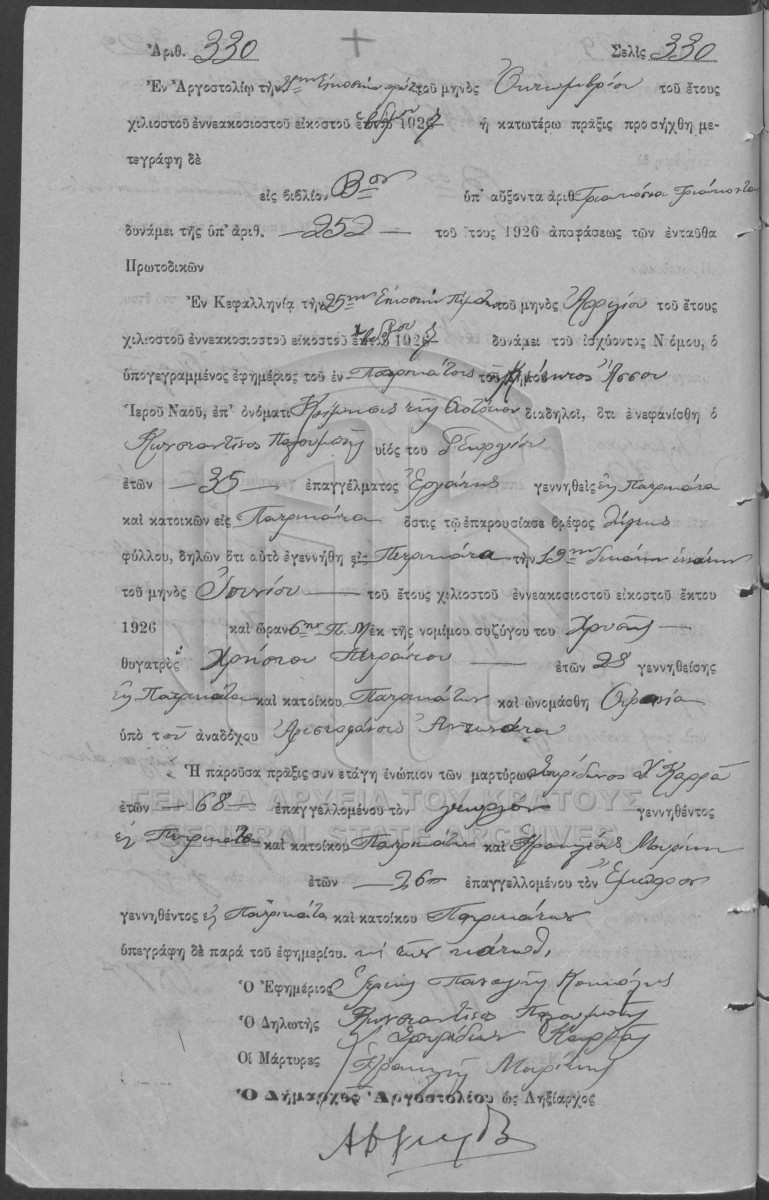 Ἀριθ. 330 Σελὶς 330
Ἐν Ἀργοστολίῳ τὴν 21ην Εἰκοστὴν πρώτην τοῦ μηνὸς Ὀκτωμβρίου τοῦ ἔτους
χιλιοστοῦ ἐννεακοσιοστοῦ εἰκοστοῦ ἑβδόμου 1927 ἡ κατωτέρω πρᾶξις προσήχθη με-
τεγράφη δὲ
εἰς βιβλίον Βον ὑπ' αὔξοντα ἀριθ. Τριακόσια τριάκοντα
δυνάμει τῆς ὑπ' ἀριθ. 252 τοῦ τους 1926 ἀποφάσεως τῶν ἐνταῦθα
Πρωτοδικῶν
Ἐν Κεφαλληνίᾳ τὴν 25ην Εἰκοστὴν πέμπτην τοῦ μηνὸς Ἀπριλίου τοῦ ἔτους
χιλιοστοῦ ἐννεακοσιοστοῦ εἰκοστοῦ ἑβδόμου 1927 δυνάμει τοῦ ἰσχύοντος Νόμου, ὁ
ὑπογεγραμμένος ἐφημέριος τοῦ ἐν Πατρικάτοις τοῦ Ἄσσου
Ἱεροῦ Ναοῦ, ἐπ' ὀνόματι Κοίμησις τῆς Θεοτόκου διαδηλοῖ, ὅτι ἐνεφανίσθη ὁ
Κωνσταντῖνος υἱός του Γεωργίου
ἐτῶν 35 ἐπαγγέλματος Ἐργάτης γεννηθεὶς ἐν Πατρικάτα
καὶ κατοικῶν εἰς Πατρικάτα ὅστις τῷ ἐπαρουσίασε βρέφος θήλεως
φύλλου, δηλῶν ὅτι αὐτὸ ἐγεννήθη εἰς Πατρικάτα τὴν 19ην Δεκάτην ἐνάτην
τοῦ μηνὸς Ἰουνίου τοῦ ἔτους χιλιοστοῦ ἐννεακοσιοστοῦ εἰκοστοῦ ἕκτου
1926 καὶ ὥραν 6ην Π.Μ. ἐκ τῆς νομίμου συζύγου του Χρυσῆς
θυγατρὸς Χρήστου Πετράτου ἐτῶν 28 γεννηθείσης
ἐν Πατρικάτα καὶ κατοίκου Πατρικάτων καὶ ὠνομάσθη Οὐρανία
ὑπὸ τοῦ ἀναδόχου Ἀριστοφάνους Ἀντωνάτου
Ἡ παροῦσα πρᾶξις συνετάγη ἐνώπιον τῶν μαρτύρων Σπυρίδωνος Καρρᾶ
ἐτῶν 68 ἐπαγγελλομένου τὸν γεωργὸν γεννηθέντος
ἐν Πατρικάτα καὶ κατοίκου Πατρικάτων καὶ
ἐτῶν 26 ἐπαγγελλομένου τὸν Ἔμπορον
γεννηθέντος ἐν Πατρικάτα καὶ κατοίκου Πατρικάτων
ὑπεγράφη δὲ παρὰ τοῦ ἐφημερίου. καὶ τῶν κάτωθι
Ὁ Ἐφημέριος Ἱερεὺς Παναγῆς
Ὁ Δηλωτὴς Κωνσταντῖνος
Σπυρίδων Καρρᾶς
Οἱ Μάρτυρες
Ὁ Δήμαρχος Ἀργοστολίου ὡς Ληξίαρχος
ΓΕΝΙΚΑ ΑΡΧΕΙΑ ΤΟΥ ΚΡΑΤΟΥΣ
GENERAL STATE ARCHIVES